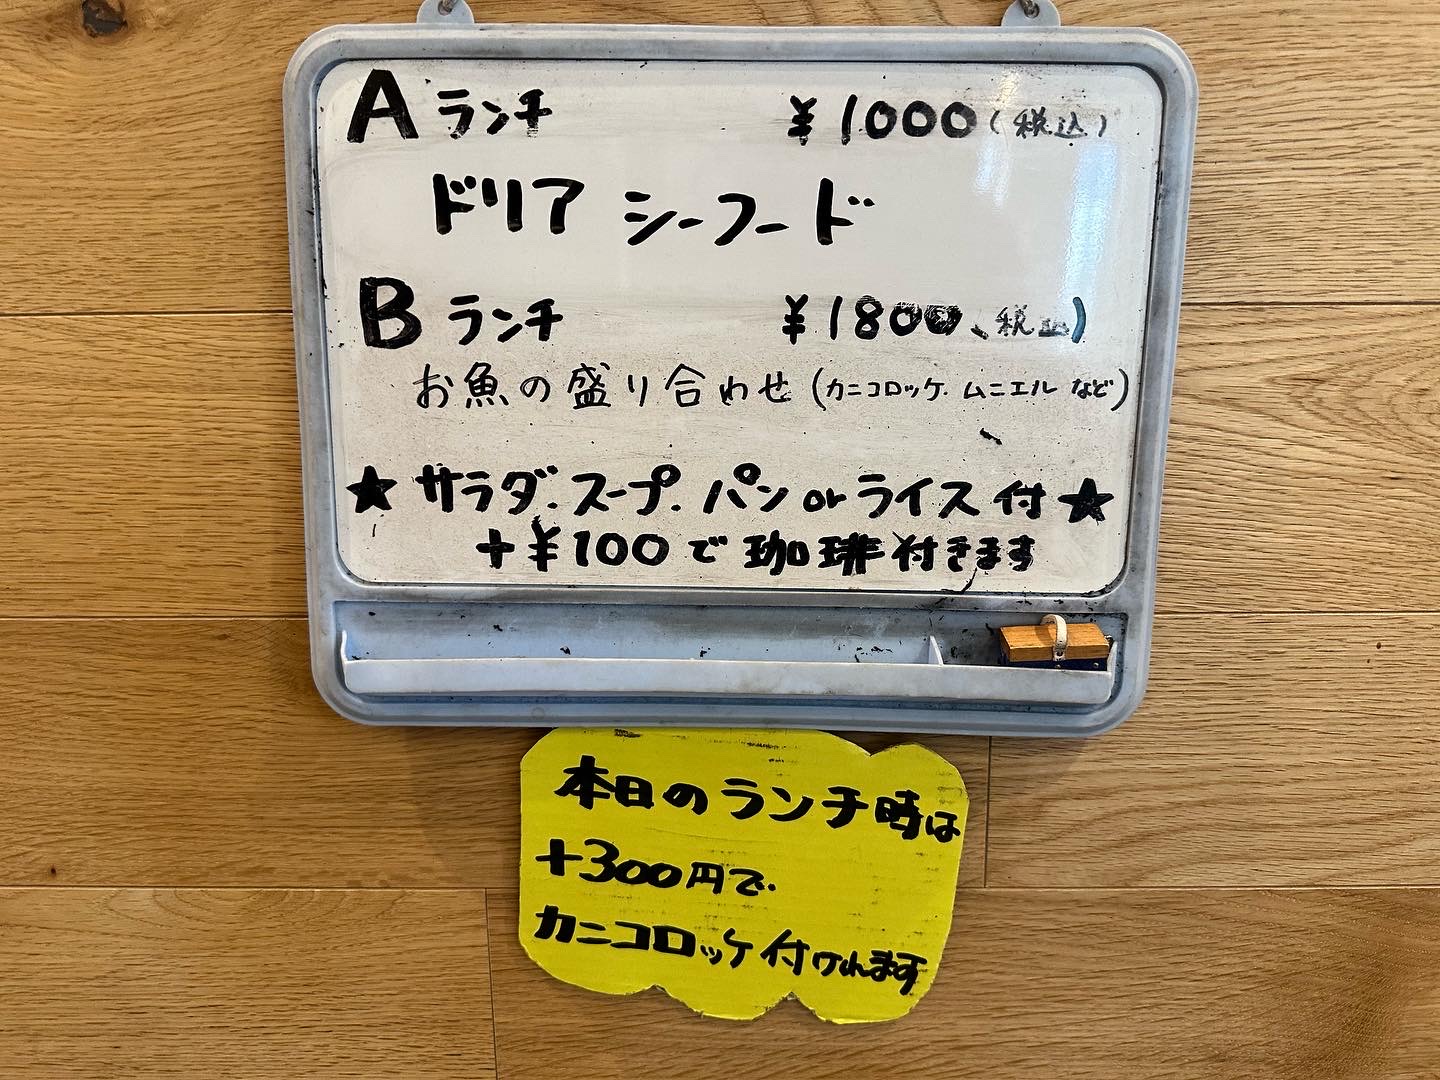 A ランチ ¥1000(税込)
ドリア シーフード
B ランチ ¥1800(税込)
お魚の盛り合わせ(カニコロッケ.ムニエルなど)
★サラダ.スープ.パンorライス付★
+¥100で珈琲付きます
本日のランチ時は
+300円で.
カニコロッケ付けれます